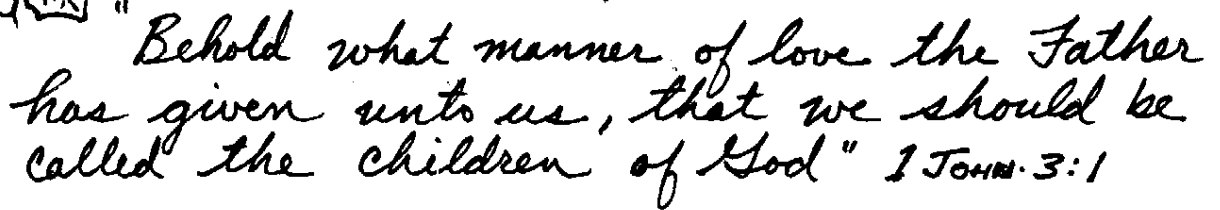 "Behold what manner of love the Father
has given unto us, that we should be
called the children of God" 1 JOHN. 3:1